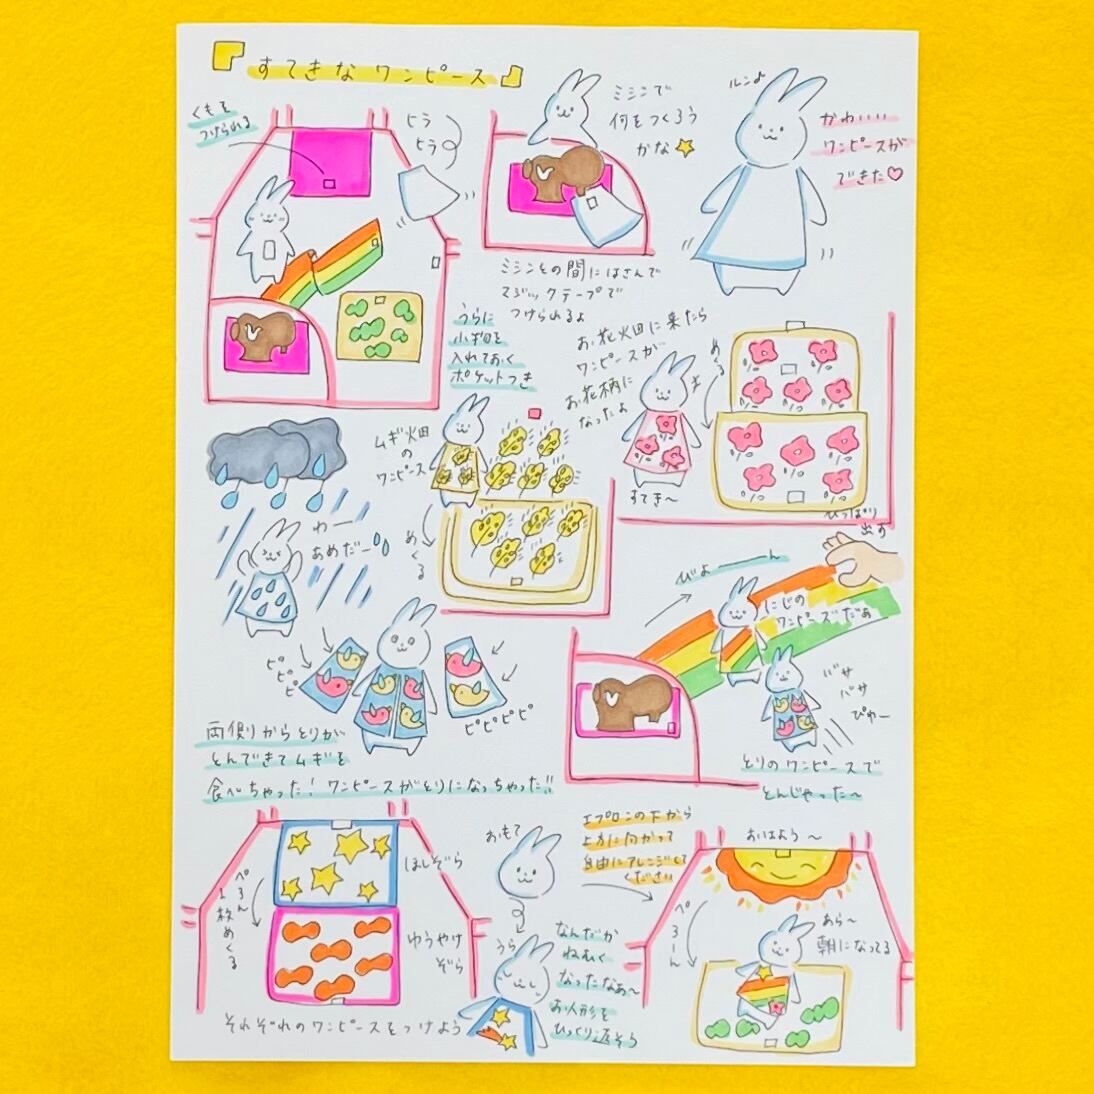 『すてきなワンピース』
くもを
つけられる
ヒラ
ヒラ
ミシンで
何をつくろう
かな
ルン♪
かわいい
ワンピースが
できた♡
ミシンとの間にはさんで
マジックテープで
つけられるよ
うらに
小物を
入れておく
ポケットつき
お花畑に来たら
ワンピースが
お花柄に
なったよ
めくる
すてき〜
ひっぱり
出す
ムギ畑
の
ワンピース
めくる
わー
あめだー
びよーーーん
にじの
ワンピースだぁ
ピピピ
ピピピピ
バサ
バサ
ぴゅー
両側からとりが
とんできてムギを
食べちゃった!ワンピースがとりになっちゃった!!
とりのワンピースで
とんじゃった〜
ぺろん
1枚めくる
ほしぞら
ゆうやけ
ぞら
それぞれのワンピースをつけよう
おもて
うら
なんだか
ねむく
なったなぁ〜
お人形を
ひっくり返そう
エプロンの下から
上方に向かって
自由にアレンジして
ください
おはよう〜
ぺろーん
あら〜
朝になってる